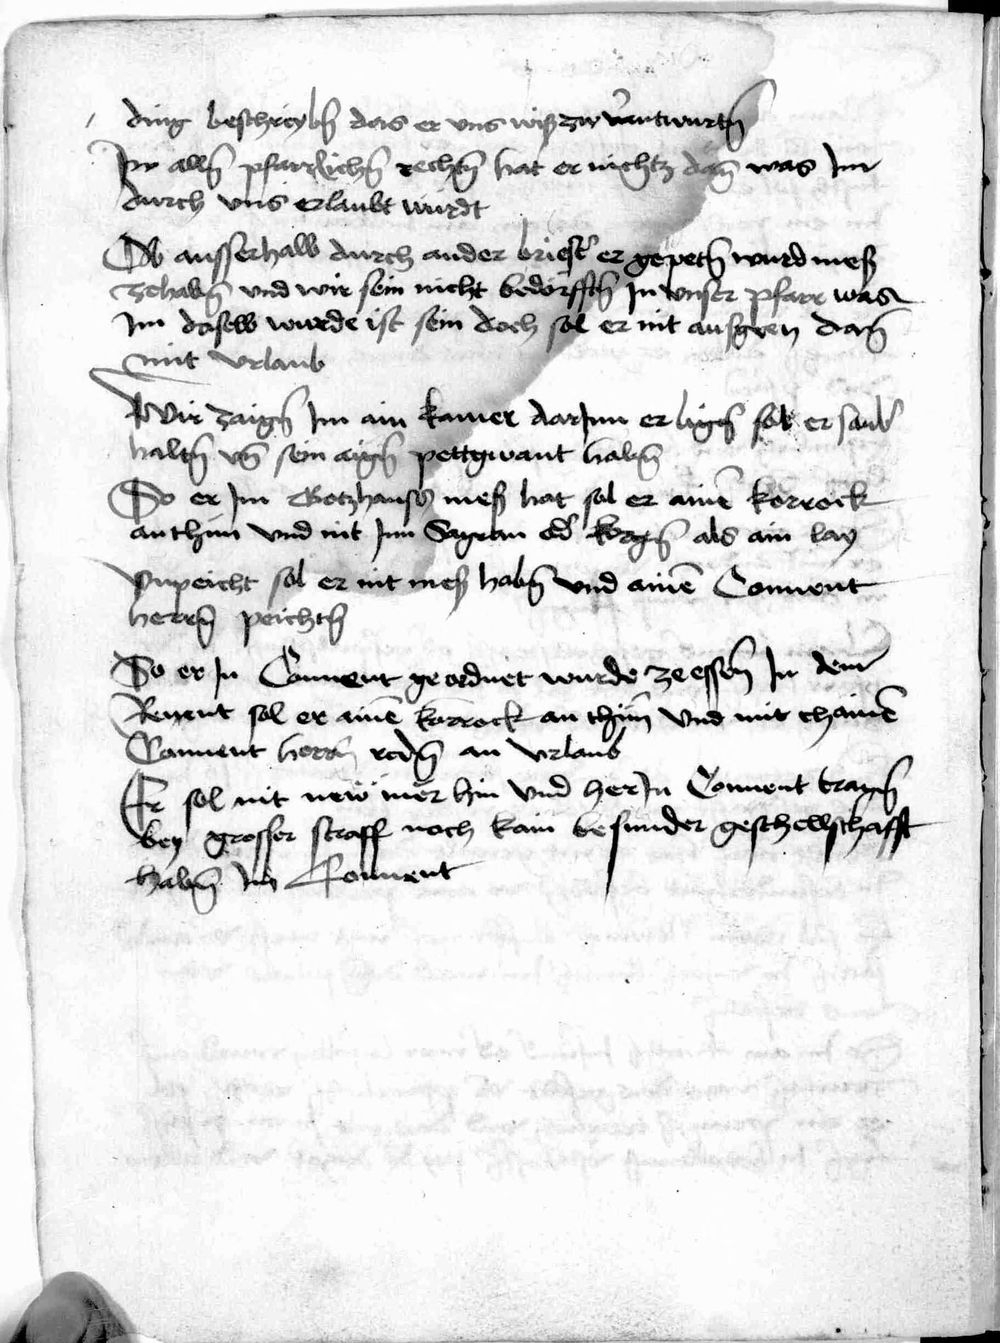 ding beschreybn das er uns wiß zw verantwurtn
In alln pfarrlichn rechtn hat er nichtz dan was Im
durch uns erlaubt wurdt
Ob ausserhalb durch ander briest er gepetn wurd meß
zehabn und wir sein nicht bedorfftn In unser pfarr was
Im dafur wurde ist sein doch sol er nit ausgen dan
mit urlaub
Wir zaign Im ain kamer darInn er lign sol er saub
haltn un sein aign pettgwant habn
So er Im Gotzhauss meß hat sol er ainen korrock
anthun und nit Inn Sagran od als ain lay
Unpeicht sol er nit meß habn und ainen Convent
herrn peichtn
So er In Convent geordnet wurde ze essen In dem
Revent sol er ainen korrock an thun und mit chainen
Convent herrn redn an urlaub
Er sol nit new mer hin und her In Convent tragn
bey grosser straff noch kain besunder geschellschafft
habn Im Convent